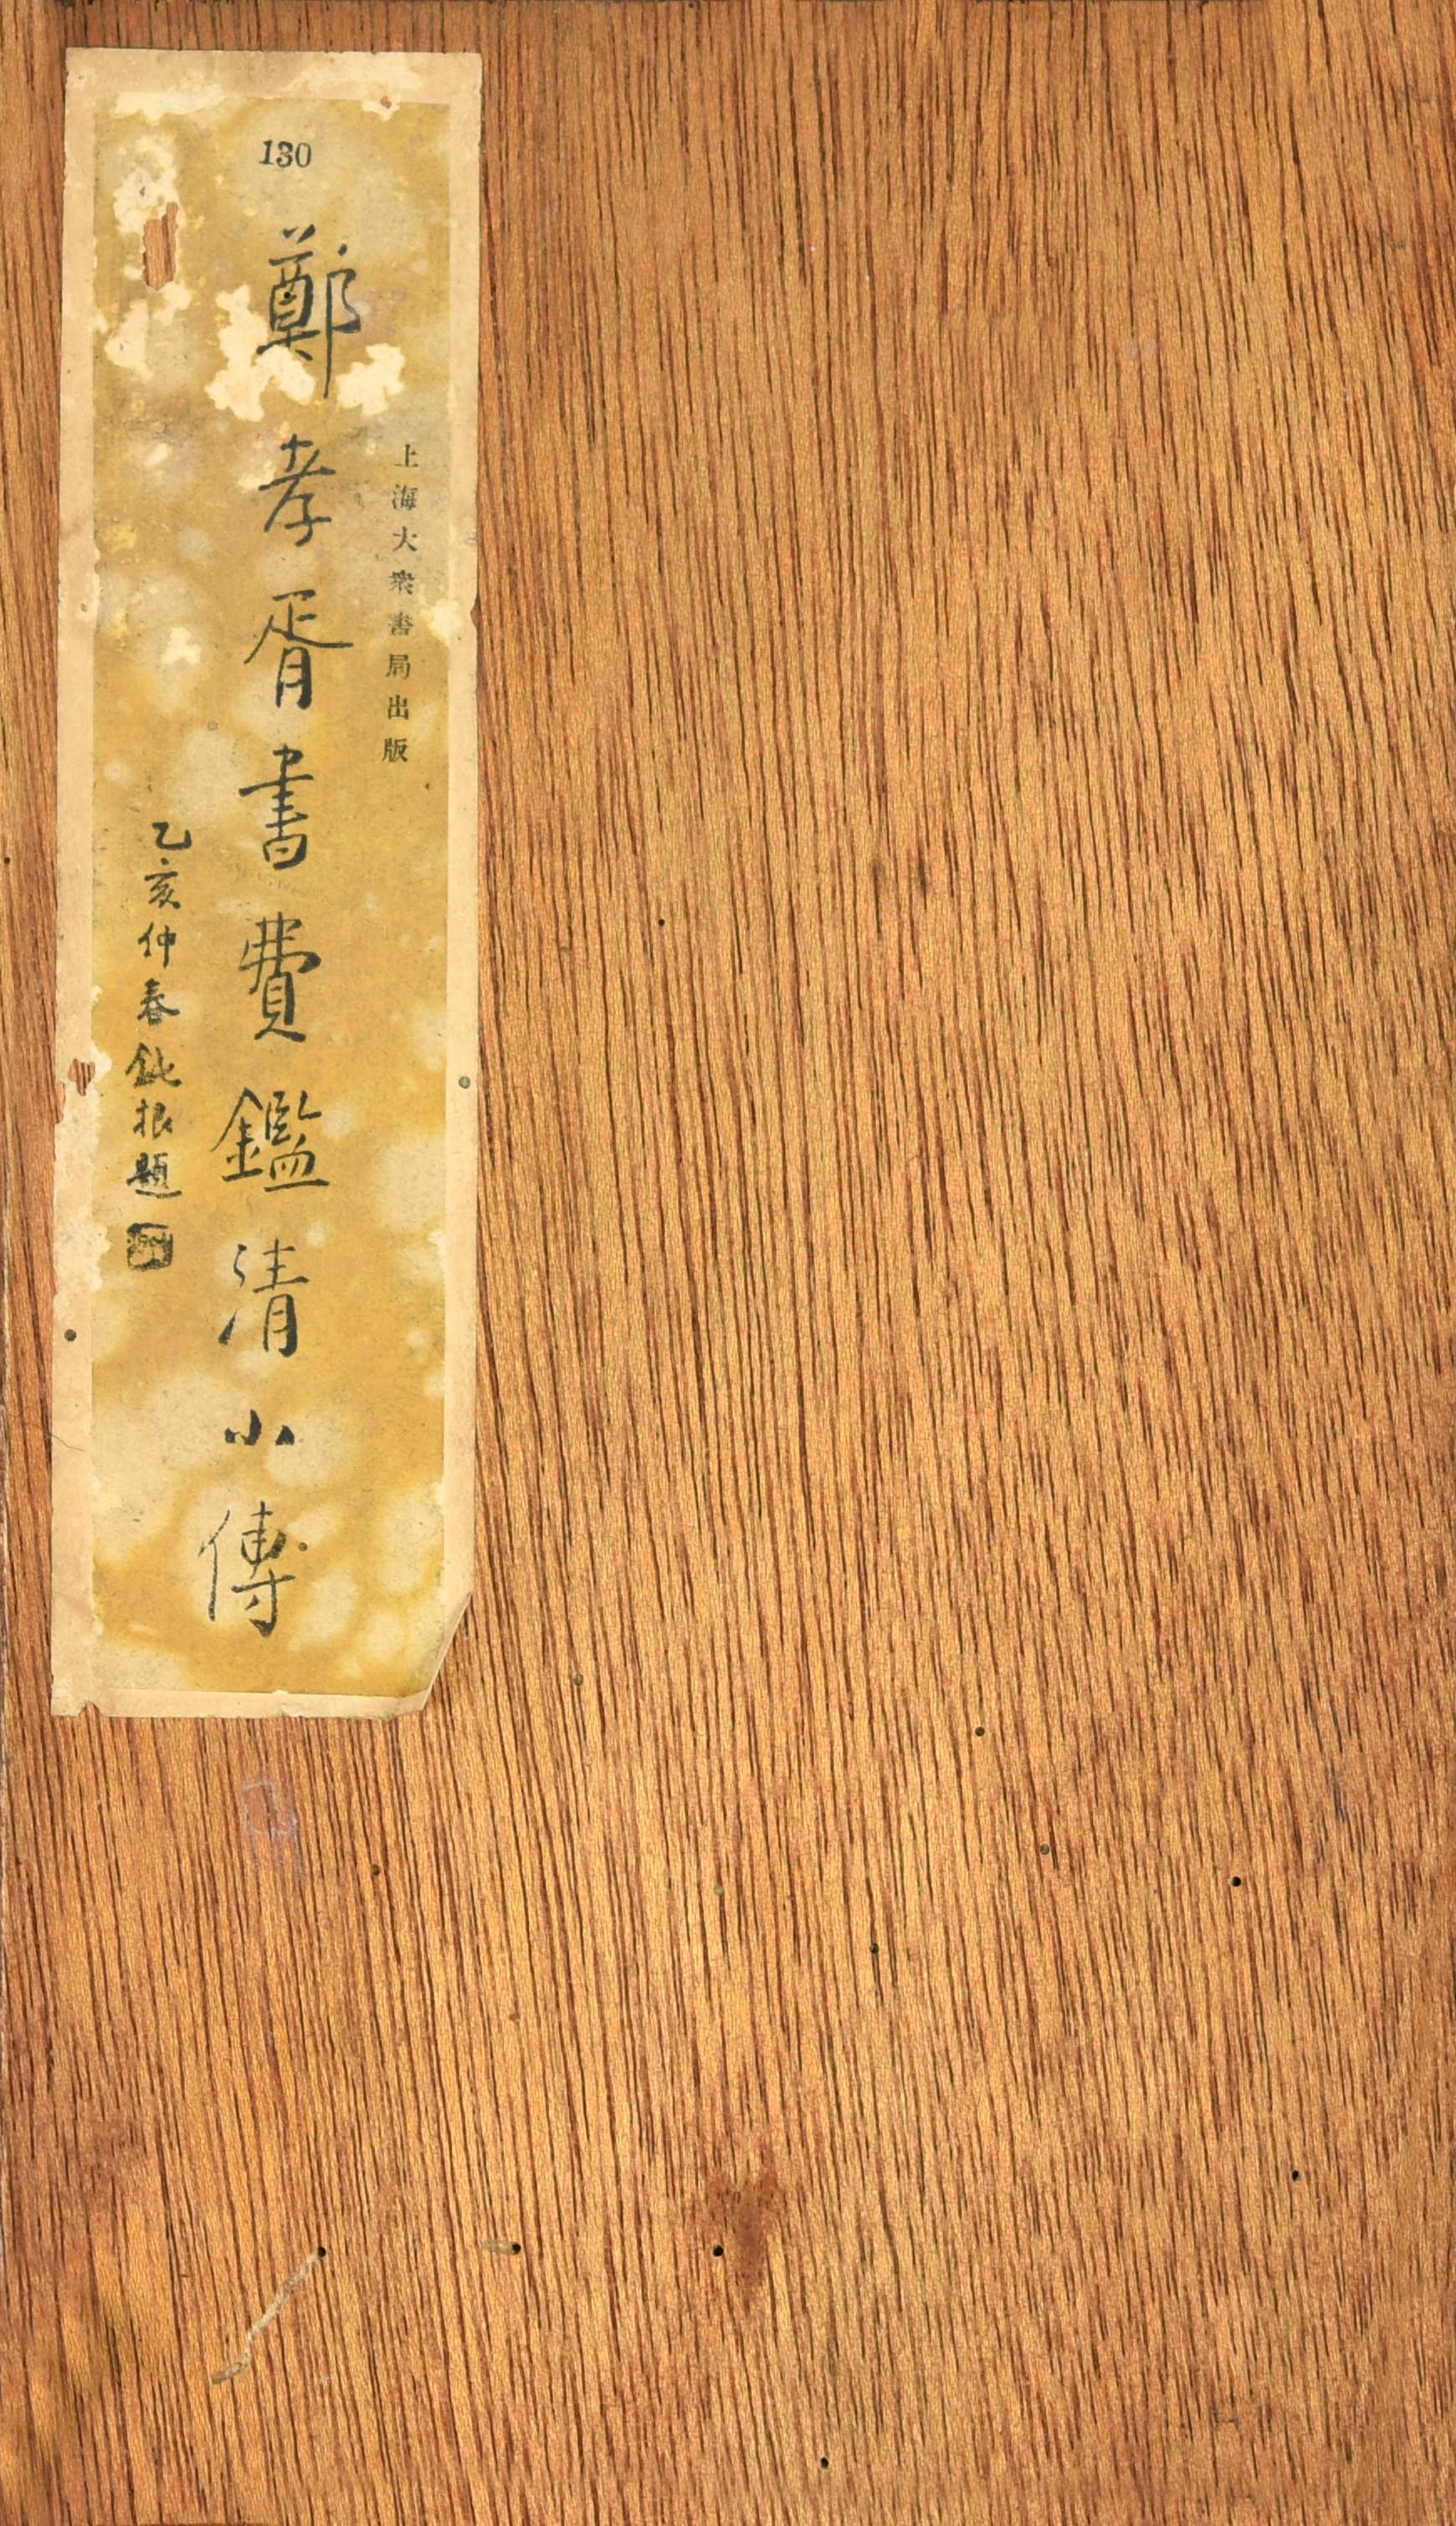 130
上海大衆書局出版
鄭孝胥書費鑑清小傳
乙亥仲春鈍根題